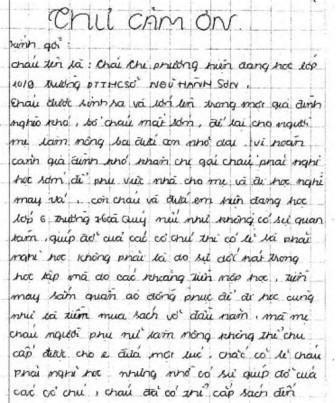 THƯ CẢM ƠN
Kính gởi:
cháu tên là: Thái Thị Phương hiện đang học lớp
10/8 trường PTTHCSố NGŨ HÀNH SƠN.
Cháu được sinh ra và lớn lên trong một gia đình
nghèo khó, bố cháu mất sớm, để lại cho người
mẹ làm nông ba đứa con nhỏ dại. Vì hoàn
cảnh gia đình khó khăn chị gái cháu phải nghỉ
học sớm để phụ việc nhà cho mẹ và đi học nghề
may vá, còn cháu và đứa em hiện đang học
lớp 6 trường nếu như không có sự quan
tâm, giúp đỡ của các cô chú thì có lẽ là phải
nghỉ học không phải là do sự dốt nát trong
học tập mà do các khoảng tiền nộp học, tiền
may sắm quần áo đồng phục để đi học cũng
như là tiền mua sách vở đầu năm, mà mẹ
cháu người phụ nữ làm nông không thể chu
cấp được cho e đứa một lúc, chắc có lẽ cháu
phải nghỉ học nhưng nhờ có sự giúp đỡ của
các cô chú, cháu đã có thể cắp sách đến